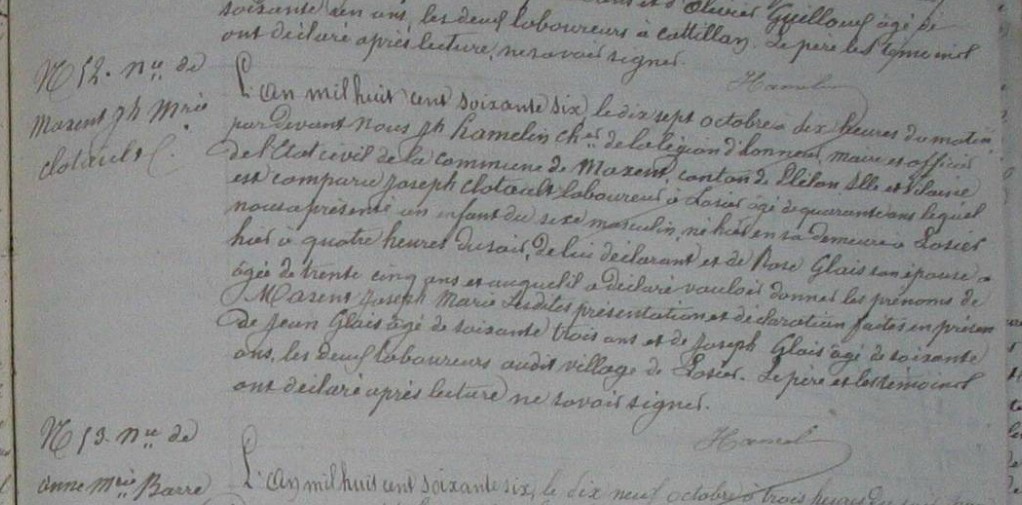 soixante un ans, les deux laboureurs à Cottillan. Le père les témoins
ont déclaré après lecture, ne savoir signer.
Hamelin
N 52. Nce de
Maxent Jh Mrie
Clotault
L'an mil huit cent soixante six, le dix sept octobre à dix heures du matin
par devant nous Jh hamelin cher de la légion d'honneur, maire et officier
de l'Etat civil de la commune de Maxent, canton de Plélan Ille et Vilaine
est comparu Joseph Clotault laboureur à Losier âgé de quarante ans lequel
nous a présenté un enfant du sexe masculin, né hier en sa demeure à Losier
hier à quatre heures du soir, de lui déclarant et de Rose Glais son épouse
âgée de trente cinq ans et auquel il a déclaré vouloir donner les prénoms de
Maxent Joseph Marie Lesdites présentation et déclaration faites en présence
de Jean Glais âgé de soixante trois ans et de Joseph Glais âgé de soixante
ans, les deux laboureurs audit village de Losier. Le père et les témoins
ont déclaré après lecture ne savoir signer.
Hamel
N 53. Nce de
anne Mrie Barre
L'an mil huit cent soixante six, le dix neuf octobre à trois heures du